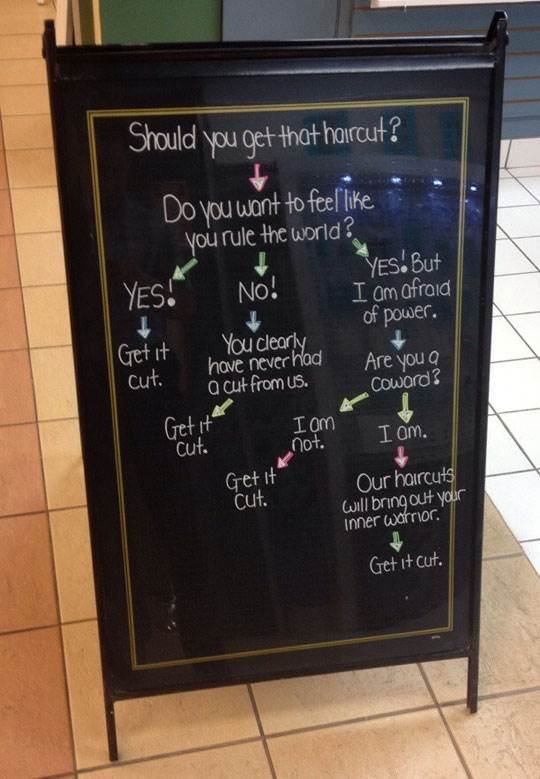 Should you get that haircut?
Do you want to feel like
you rule the world?
YES!
Get it
cut.
NO!
You clearly
have never had
a cut from us.
Get it
cut.
YES! But
I am afraid
of power.
Are you a
coward?
I am
not.
Get it
cut.
I am.
Our haircuts
will bring out your
inner warrior.
Get it cut.